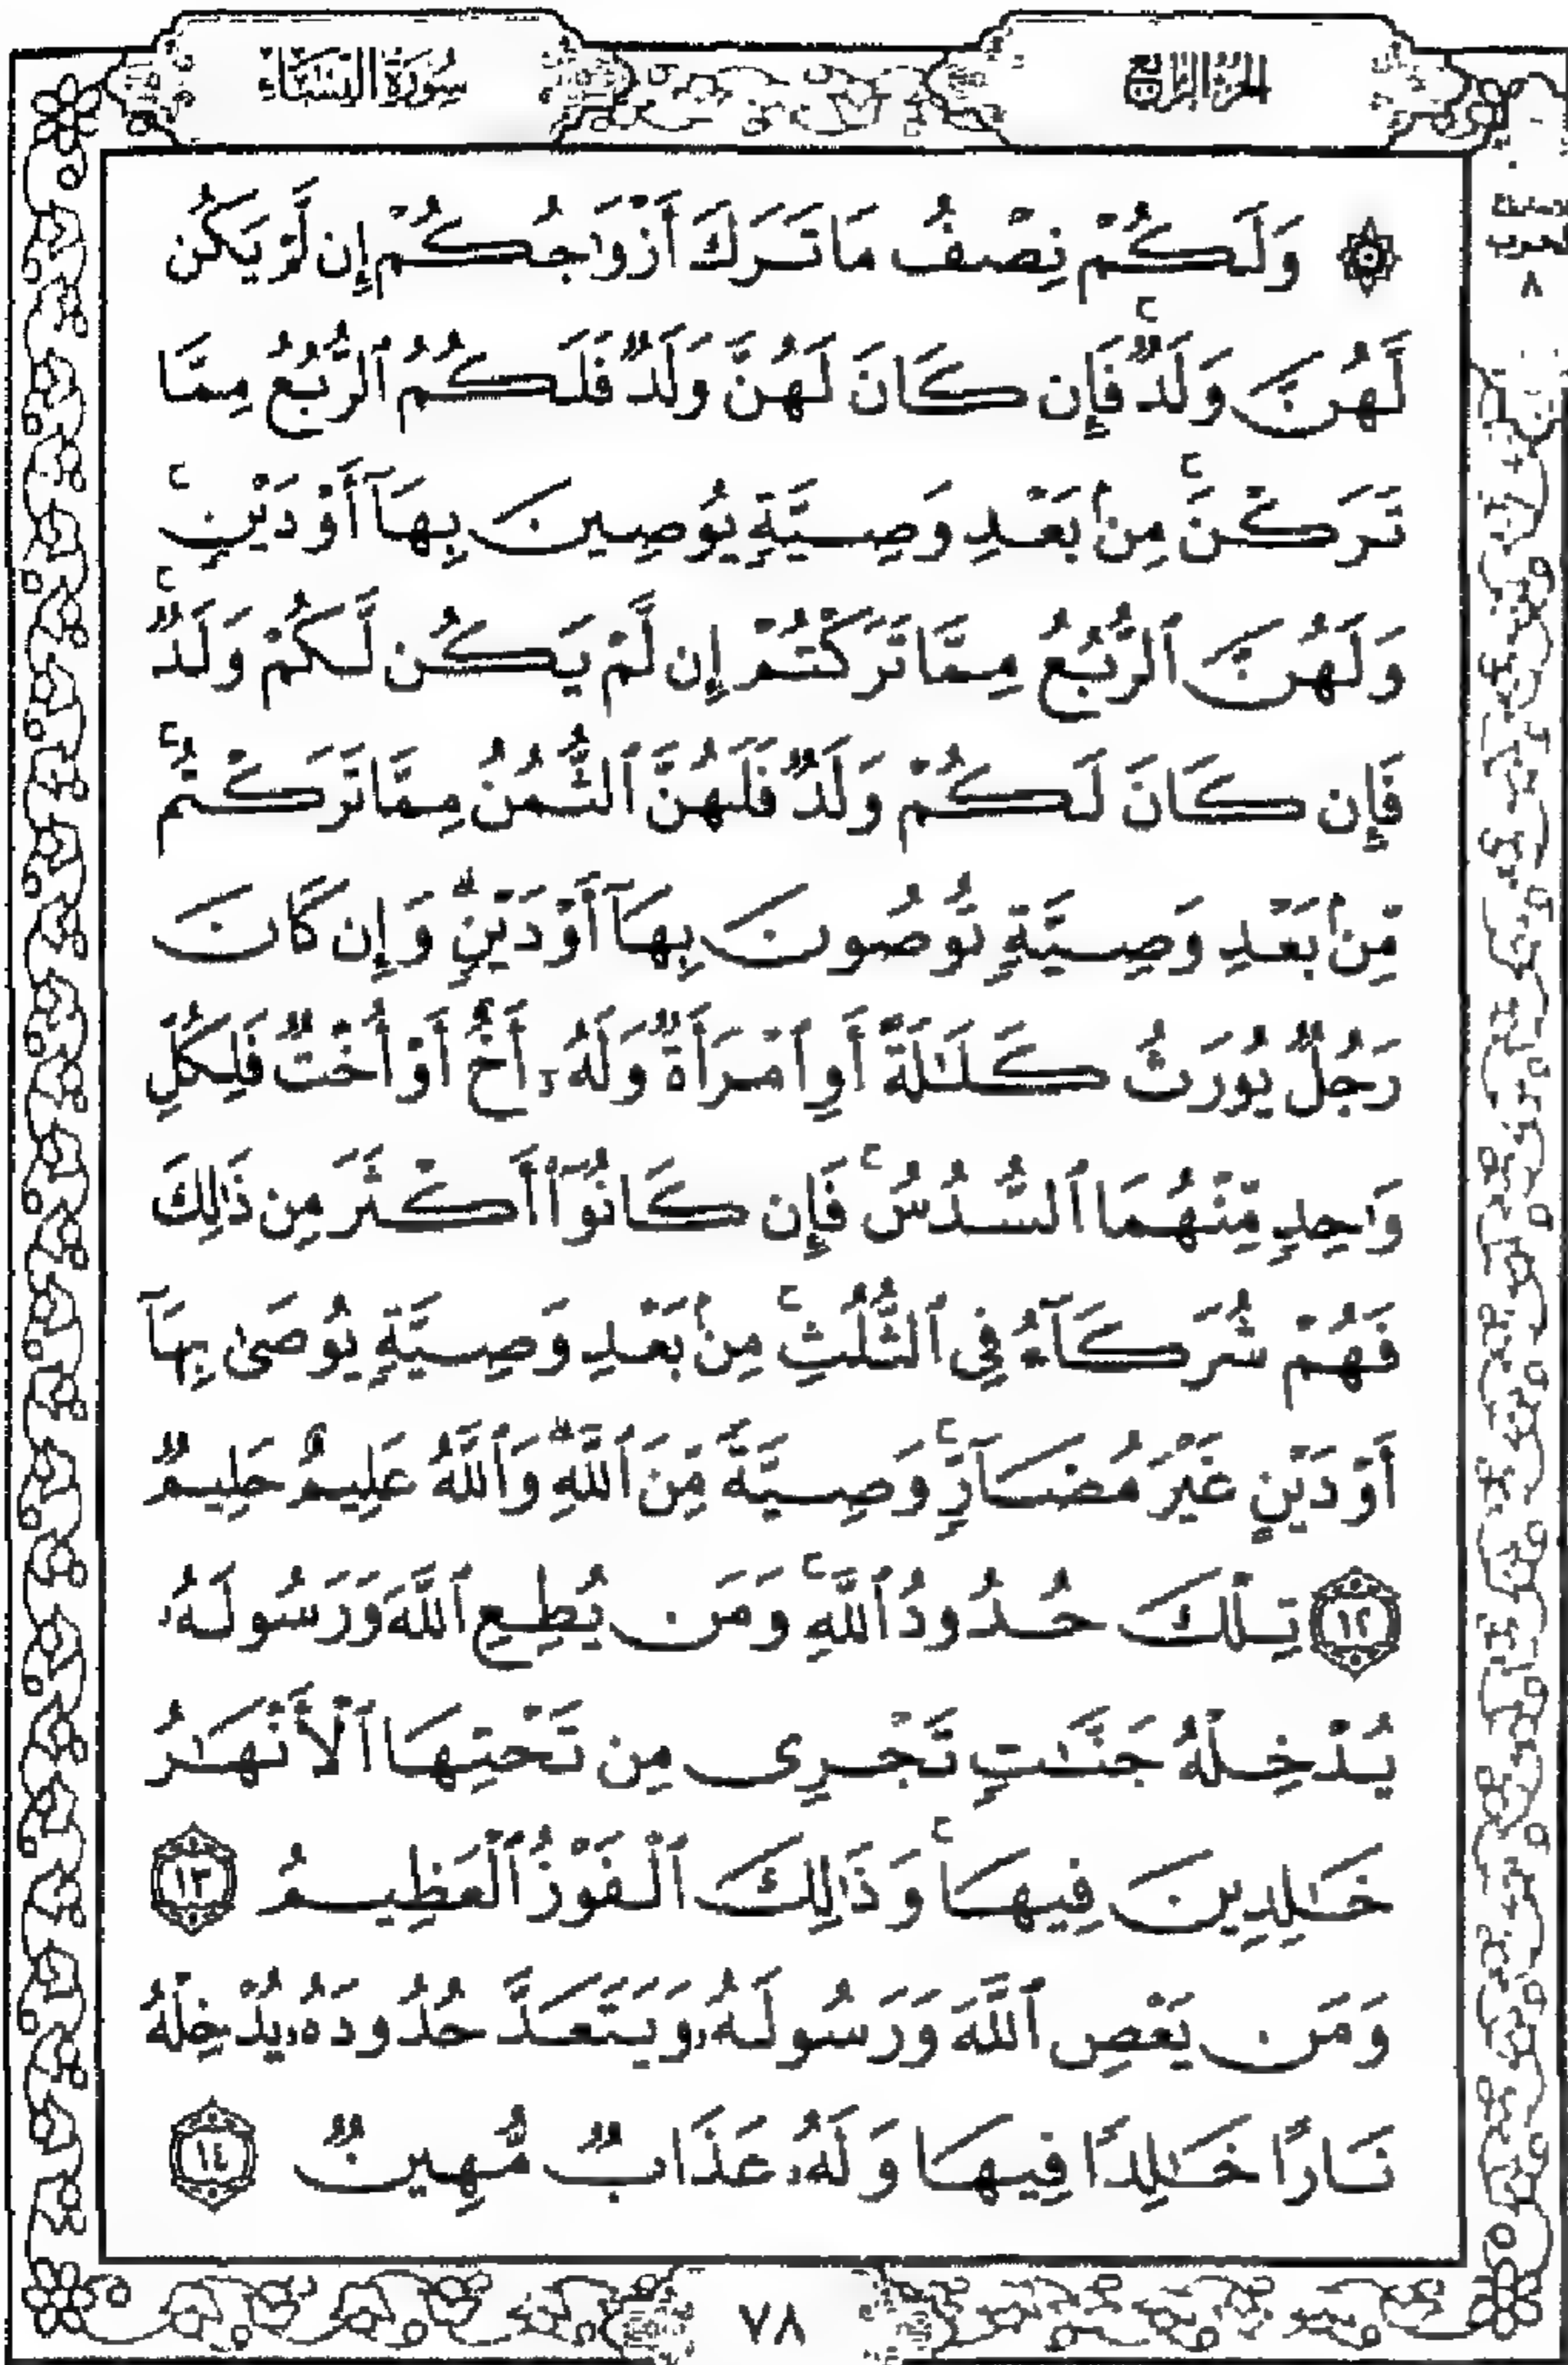 الجزء الرابع
سُورَةُ النِّسَاءِ
نصف
الحزب
٨
۞ وَلَكُمْ نِصْفُ مَا تَرَكَ أَزْوَٰجُكُمْ إِن لَّمْ يَكُن
لَّهُنَّ وَلَدٌ ۚ فَإِن كَانَ لَهُنَّ وَلَدٌ فَلَكُمُ ٱلرُّبُعُ مِمَّا
تَرَكْنَ ۚ مِنۢ بَعْدِ وَصِيَّةٍ يُوصِينَ بِهَآ أَوْ دَيْنٍ ۚ
وَلَهُنَّ ٱلرُّبُعُ مِمَّا تَرَكْتُمْ إِن لَّمْ يَكُن لَّكُمْ وَلَدٌ ۚ
فَإِن كَانَ لَكُمْ وَلَدٌ فَلَهُنَّ ٱلثُّمُنُ مِمَّا تَرَكْتُم ۚ
مِّنۢ بَعْدِ وَصِيَّةٍ تُوصُونَ بِهَآ أَوْ دَيْنٍ ۗ وَإِن كَانَ
رَجُلٌ يُورَثُ كَلَٰلَةً أَوِ ٱمْرَأَةٌ وَلَهُۥٓ أَخٌ أَوْ أُخْتٌ فَلِكُلِّ
وَٰحِدٍ مِّنْهُمَا ٱلسُّدُسُ ۚ فَإِن كَانُوٓا۟ أَكْثَرَ مِن ذَٰلِكَ
فَهُمْ شُرَكَآءُ فِى ٱلثُّلُثِ ۚ مِنۢ بَعْدِ وَصِيَّةٍ يُوصَىٰ بِهَآ
أَوْ دَيْنٍ غَيْرَ مُضَآرٍّ ۚ وَصِيَّةً مِّنَ ٱللَّهِ ۗ وَٱللَّهُ عَلِيمٌ حَلِيمٌ
١٢ تِلْكَ حُدُودُ ٱللَّهِ ۚ وَمَن يُطِعِ ٱللَّهَ وَرَسُولَهُۥ
يُدْخِلْهُ جَنَّٰتٍ تَجْرِى مِن تَحْتِهَا ٱلْأَنْهَٰرُ
خَٰلِدِينَ فِيهَا ۚ وَذَٰلِكَ ٱلْفَوْزُ ٱلْعَظِيمُ ١٣
وَمَن يَعْصِ ٱللَّهَ وَرَسُولَهُۥ وَيَتَعَدَّ حُدُودَهُۥ يُدْخِلْهُ
نَارًا خَٰلِدًا فِيهَا وَلَهُۥ عَذَابٌ مُّهِينٌ ١٤
٧٨